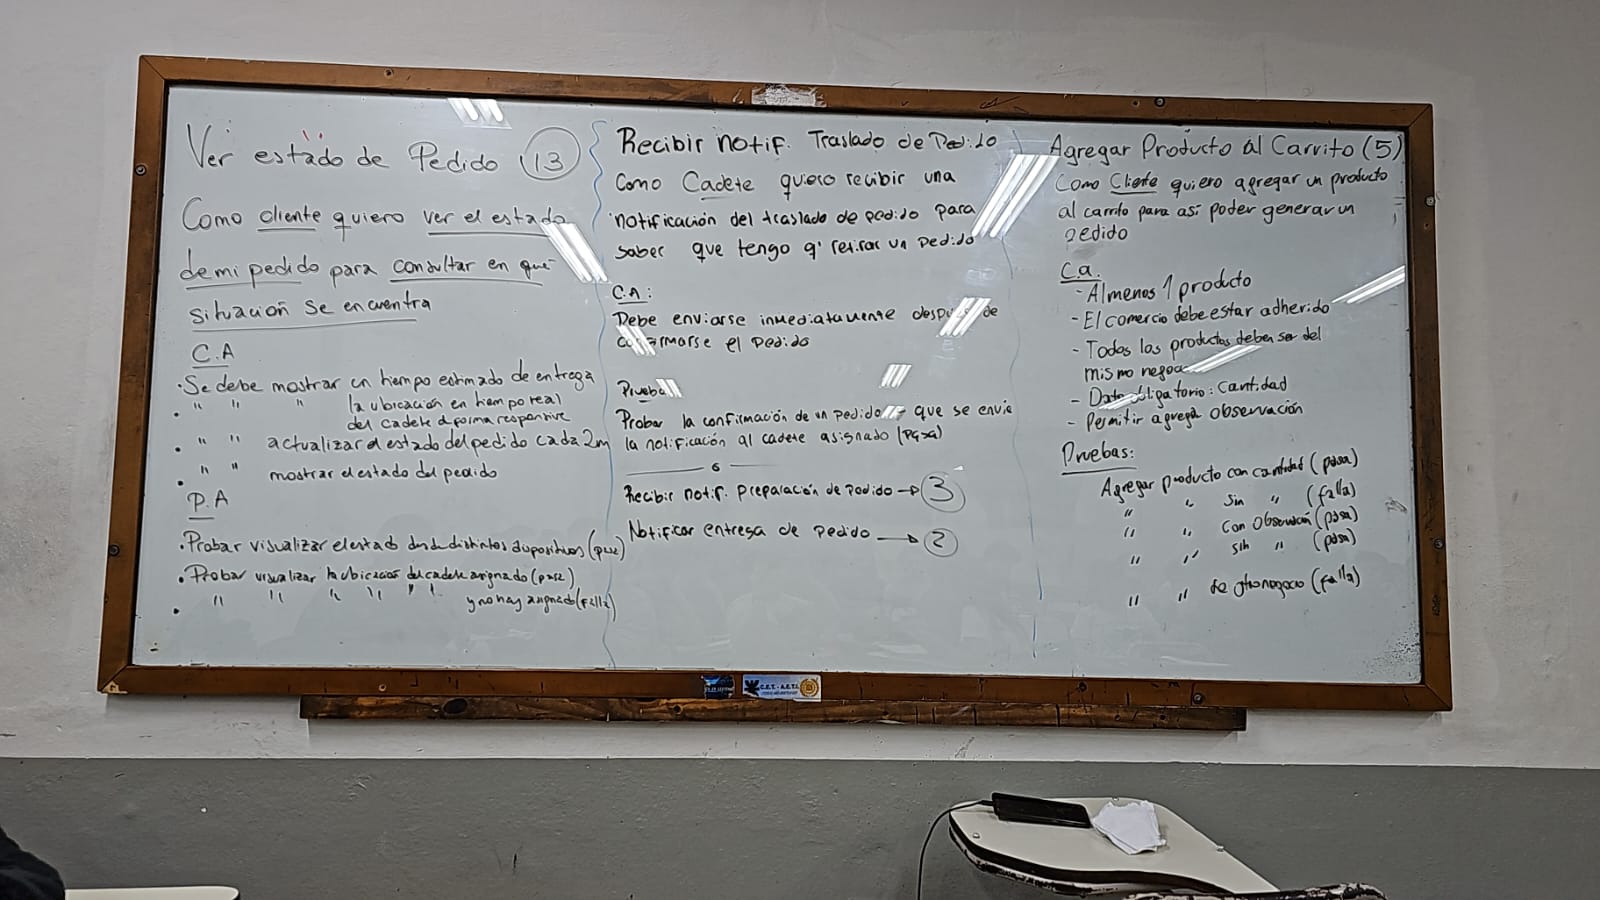 Ver estado de Pedido (13)
Como cliente quiero ver el estado
de mi pedido para consultar en que
situación se encuentra
C.A
· Se debe mostrar un tiempo estimado de entrega
· " " " la ubicación en tiempo real
del cadete de forma responsive
· " " actualizar el estado del pedido cada 2m
· " " mostrar el estado del pedido
P.A
· Probar visualizar el estado desde distintos dispositivos (pasa)
· Probar visualizar la ubicación del cadete asignado (pasa)
· " " " " " " y no hay asignado (falla)
Recibir notif. Traslado de Pedido
Como Cadete quiero recibir una
notificación del traslado de pedido para
saber que tengo q' retirar un pedido
C.A:
Debe enviarse inmediatamente después de
confirmarse el pedido
Prueba
Probar la confirmación de un pedido y que se envie
la notificación al cadete asignado (pasa)
Recibir notif. Preparación de Pedido → 3
Notificar entrega de pedido → 2
Agregar Producto al Carrito (5)
Como Cliente quiero agregar un producto
al carrito para así poder generar un
pedido
C.a.
- Al menos 1 producto
- El comercio debe estar adherido
- Todos los productos deben ser del
mismo negocio
- Dato obligatorio: Cantidad
- Permitir agregar observación
Pruebas:
Agregar producto con cantidad (pasa)
" " sin " (falla)
" " con observación (pasa)
" " sin " (pasa)
" " de otro negocio (falla)
C.E.T. - A.E.T.I.